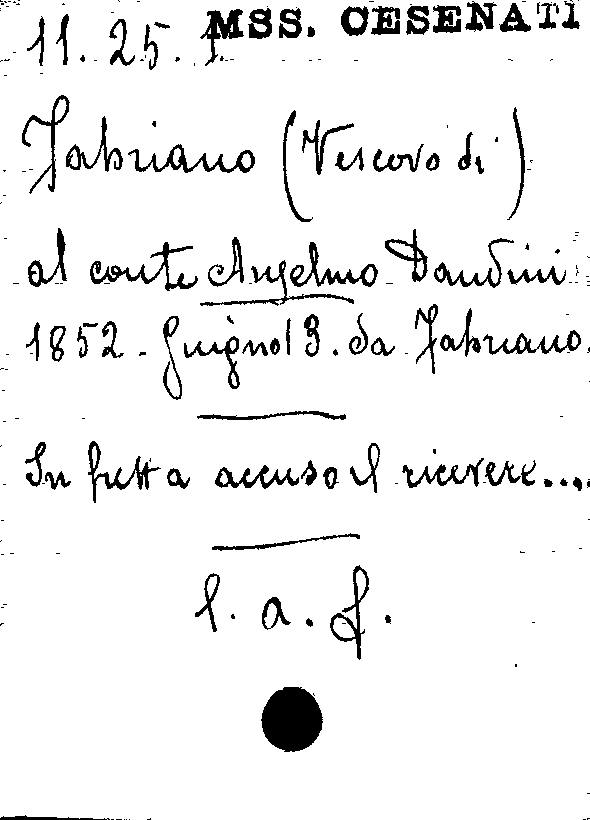 11. 25. 1. MSS. CESENATI
Fabriano (Vescovo di)
al conte Anselmo Dandini
1852 - Giugno 13. da Fabriano.
In fretta accuso il ricevere....
l. a. f.